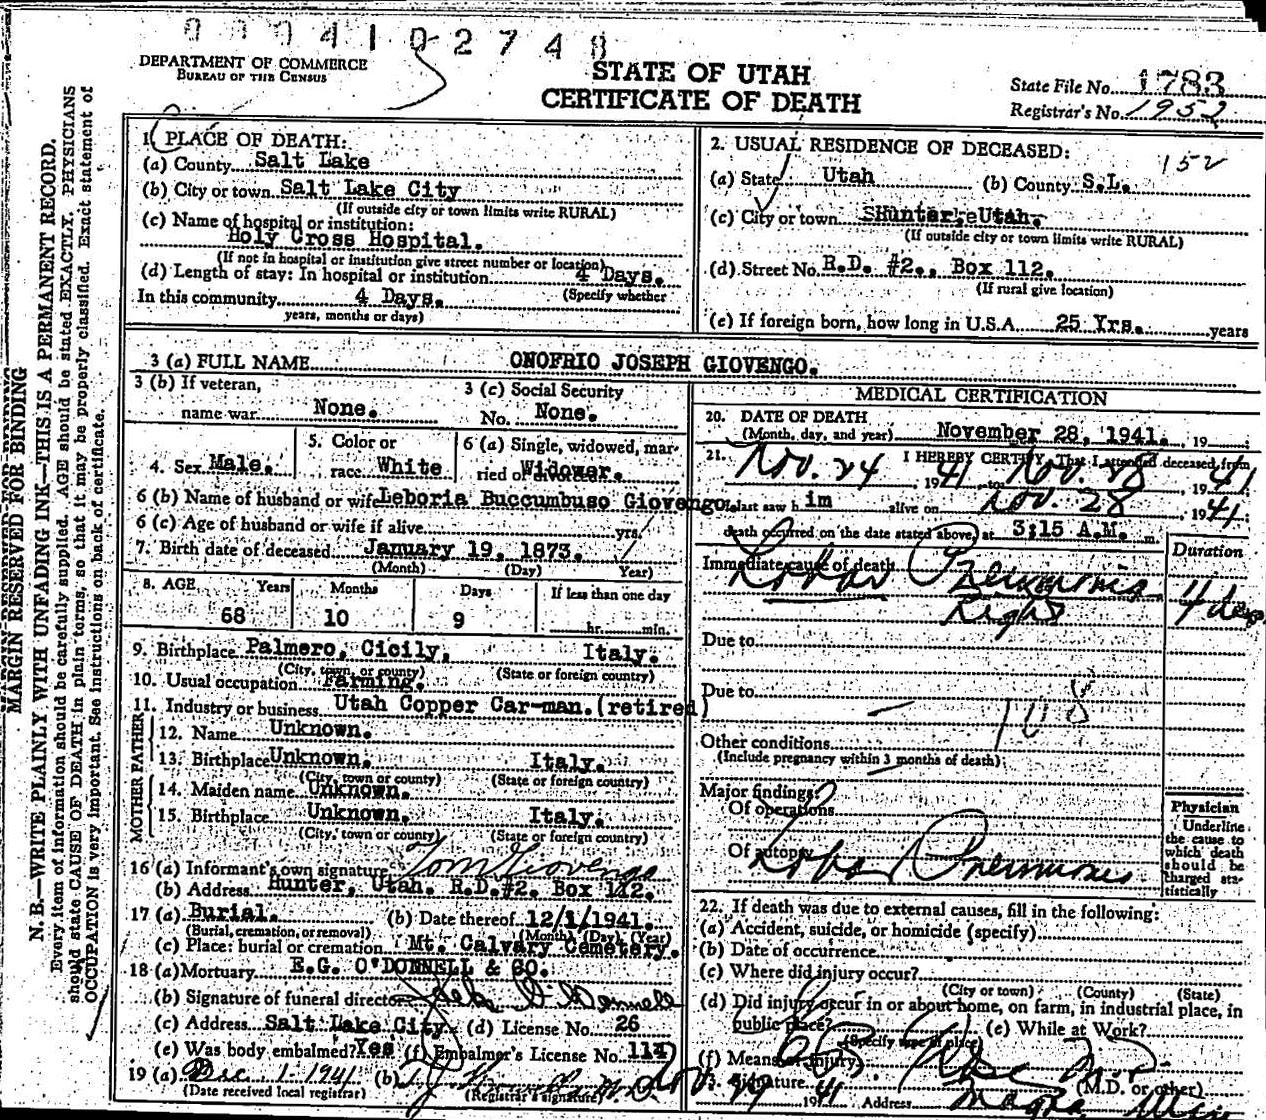 0004102748
DEPARTMENT OF COMMERCE
BUREAU OF THE CENSUS
STATE OF UTAH
CERTIFICATE OF DEATH
State File No. 1783
Registrar's No. 1952
MARGIN RESERVED FOR BINDING
N. B.—WRITE PLAINLY WITH UNFADING INK—THIS IS A PERMANENT RECORD.
Every item of information should be carefully supplied. AGE should be stated EXACTLY. PHYSICIANS
should state CAUSE OF DEATH in plain terms, so that it may be properly classified. Exact statement of
OCCUPATION is very important. See instructions on back of certificate.
1. PLACE OF DEATH:
(a) County Salt Lake
(b) City or town Salt Lake City
(If outside city or town limits write RURAL)
(c) Name of hospital or institution:
Holy Cross Hospital.
(If not in hospital or institution give street number or location)
(d) Length of stay: In hospital or institution 4 Days.
(Specify whether
In this community 4 Days.
years, months or days)
2. USUAL RESIDENCE OF DECEASED:
152
(a) State Utah (b) County S.L.
(c) City or town Hunter, Utah.
(If outside city or town limits write RURAL)
(d) Street No. R.D. #2., Box 112.
(If rural give location)
(e) If foreign born, how long in U.S.A. 25 Yrs. years
3 (a) FULL NAME ONOFRIO JOSEPH GIOVENGO.
3 (b) If veteran,
name war None.
3 (c) Social Security
No. None.
4. Sex Male.
5. Color or
race White
6 (a) Single, widowed, mar-
ried or divorced Widower.
6 (b) Name of husband or wife Leboria Buccumbuso Giovengo.
6 (c) Age of husband or wife if alive yrs.
7. Birth date of deceased January 19, 1873.
(Month) (Day) Year)
8. AGE Years Months Days If less than one day
68 10 9 hr. min.
9. Birthplace Palmero, Cicily, Italy.
(City, town, or county) (State or foreign country)
10. Usual occupation Farming.
11. Industry or business Utah Copper Car-man.(retired)
FATHER
12. Name Unknown.
13. Birthplace Unknown. Italy.
(City, town or county) (State or foreign country)
MOTHER
14. Maiden name Unknown.
15. Birthplace Unknown. Italy.
(City, town or county) (State or foreign country)
16 (a) Informant's own signature Tom Giovengo
(b) Address Hunter, Utah. R.D.#2. Box 112.
17 (a) Burial. (b) Date thereof 12/1/1941.
(Burial, cremation, or removal) (Month) (Day) (Year)
(c) Place: burial or cremation Mt. Calvary Cemetery.
18 (a) Mortuary E.G. O'DONNELL & CO.
(b) Signature of funeral director
(c) Address Salt Lake City (d) License No. 26
(e) Was body embalmed? Yes (f) Embalmer's License No. 114
19 (a) Dec. 1. 1941 (b)
(Date received local registrar) (Registrar's signature)
MEDICAL CERTIFICATION
20. DATE OF DEATH
(Month, day, and year) November 28, 1941. , 19
21. I HEREBY CERTIFY, That I attended deceased from
Nov. 24 1941 to Nov. 28 1941
last saw him alive on Nov. 28 1941.
death occurred on the date stated above, at 3:15 A.M. m.
Duration
Immediate cause of death Lobar Pneumonia
Right
4 days
Due to
Due to
108
Other conditions
(Include pregnancy within 3 months of death)
Major findings:
Of operations
Of autopsy Lobar Pneumonia
Physician
Underline
the cause to
which death
should be
charged sta-
tistically
22. If death was due to external causes, fill in the following:
(a) Accident, suicide, or homicide (specify)
(b) Date of occurrence
(c) Where did injury occur?
(City or town) (County) (State)
(d) Did injury occur in or about home, on farm, in industrial place, in
public place? (e) While at Work?
(Specify type of place)
(f) Means of injury
23. Signature M.D.
(M.D. or other)
Address Magna Utah